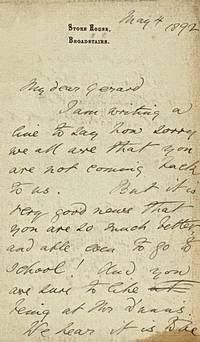 May 4 1892
STONE HOUSE,
BROADSTAIRS.
My dear Gerard
I am writing a
line to say how sorry
we all are that you
are not coming back
to us. But it is
very good news that
you are so much better
and able even to go to
School! And you
are sure to like
being at Mr Dunn's
We hear it is to be